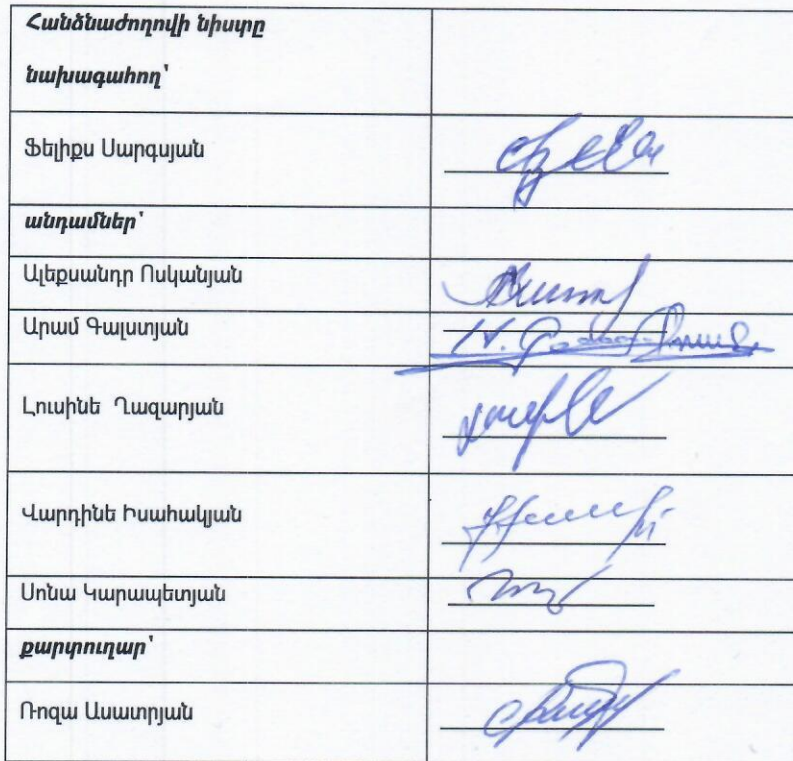 Հանձնաժողովի նիստը
նախագահող՝
Ֆելիքս Սարգսյան
անդամներ՝
Ալեքսանդր Ոսկանյան
Արամ Գալստյան
Լուսինե Ղազարյան
Վարդինե Իսահակյան
Սոնա Կարապետյան
քարտուղար՝
Ռոզա Ասատրյան